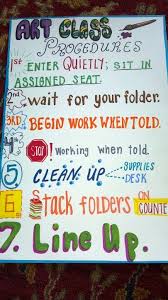 ART CLASS
PROCEDURES
1st ENTER QUIETLY; SIT IN
ASSIGNED SEAT.
2nd wait for your folder.
3RD. BEGIN WORK WHEN TOLD.
4 STOP! Working when told.
5 CLEAN UP SUPPLIES
DESK
6 Stack folders ON
COUNTE
7. Line Up.